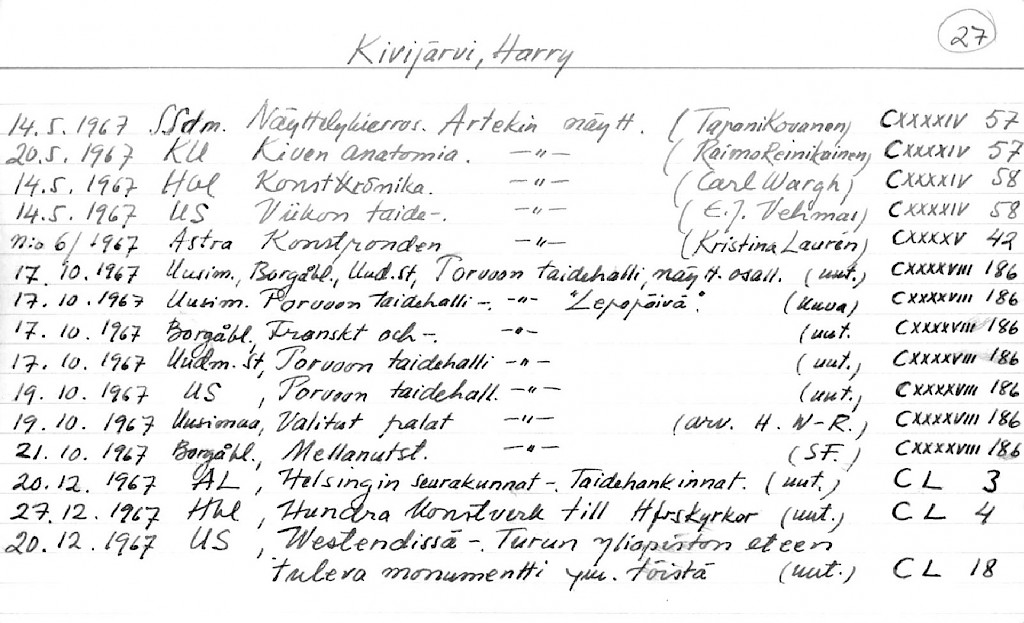 27
Kivijärvi, Harry
14.5.1967 SSdm. Näyttelykierros. Artekin näytt. (Tapani Kovanen) CXXXXIV 57
20.5.1967 KU Kiven anatomia. –"– (Raimo Reinikainen) CXXXXIV 57
14.5.1967 Hbl Konstkrönika. –"– (Carl Wargh) CXXXXIV 58
14.5.1967 US Viikon taide-. –"– (E.J. Vehmas) CXXXXIV 58
n:o 6/1967 Astra Konstronden –"– (Kristina Laurén) CXXXXV 42
17.10.1967 Uusim., Borgåbl., Uud.st, Porvoon taidehalli, näytt. osall. (uut.) CXXXXVIII 186
17.10.1967 Uusim. Porvoon taidehalli-. –"– "Lepopäivä". (kuva) CXXXXVIII 186
17.10.1967 Borgåbl., Franskt och-. –"– (uut. CXXXXVIII 186
17.10.1967 Uudm.st, Porvoon taidehalli –"– (uut.) CXXXXVIII 186
19.10.1967 US, Porvoon taidehall. –"– (uut.) CXXXXVIII 186
19.10.1967 Uusimaa, Valitut palat –"– (arv. H. W-R.) CXXXXVIII 186
21.10.1967 Borgåbl., Mellanutst. –"– (SF.) CXXXXVIII 186
20.12.1967 AL, Helsingin seurakunnat-. Taidehankinnat. (uut.) CL 3
27.12.1967 Hbl, Hundra konstverk till Hfrskyrkor (uut.) CL 4
20.12.1967 US, Westendissä-. Turun yliopiston eteen
tuleva monumentti ym. töistä (uut.) CL 18